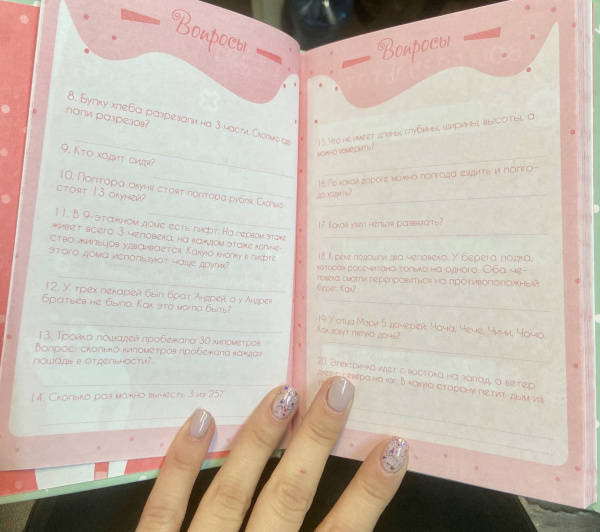 Вопросы
8. Булку хлеба разрезали на 3 части. Сколько сде-
лали разрезов?
9. Кто ходит сидя?
10. Полтора окуня стоят полтора рубля. Сколько
стоят 13 окуней?
11. В 9-этажном доме есть лифт. На первом этаже
живет всего 3 человека, на каждом этаже количе-
ство жильцов удваивается. Какую кнопку в лифте
этого дома используют чаще других?
12. У трех пекарей был брат Андрей, а у Андрея
братьев не было. Как это могло быть?
13. Тройка лошадей пробежала 30 километров.
Вопрос: сколько километров пробежала каждая
лошадь в отдельности?
14. Сколько раз можно вычесть 3 из 25?
Вопросы
15. Что не имеет длины, глубины, ширины, высоты, а
можно измерить?
16. По какой дороге можно полгода ездить и полго-
да ходить?
17. Какой узел нельзя развязать?
18. К реке подошли два человека. У берега лодка,
которая рассчитана только на одного. Оба че-
ловека смогли переправиться на противоположный
берег. Как?
19. У отца Мэри 5 дочерей: Чача, Чече, Чичи, Чочо.
Как зовут пятую дочь?
20. Электричка идет с востока на запад, а ветер
дует с севера на юг. В какую сторону летит дым из